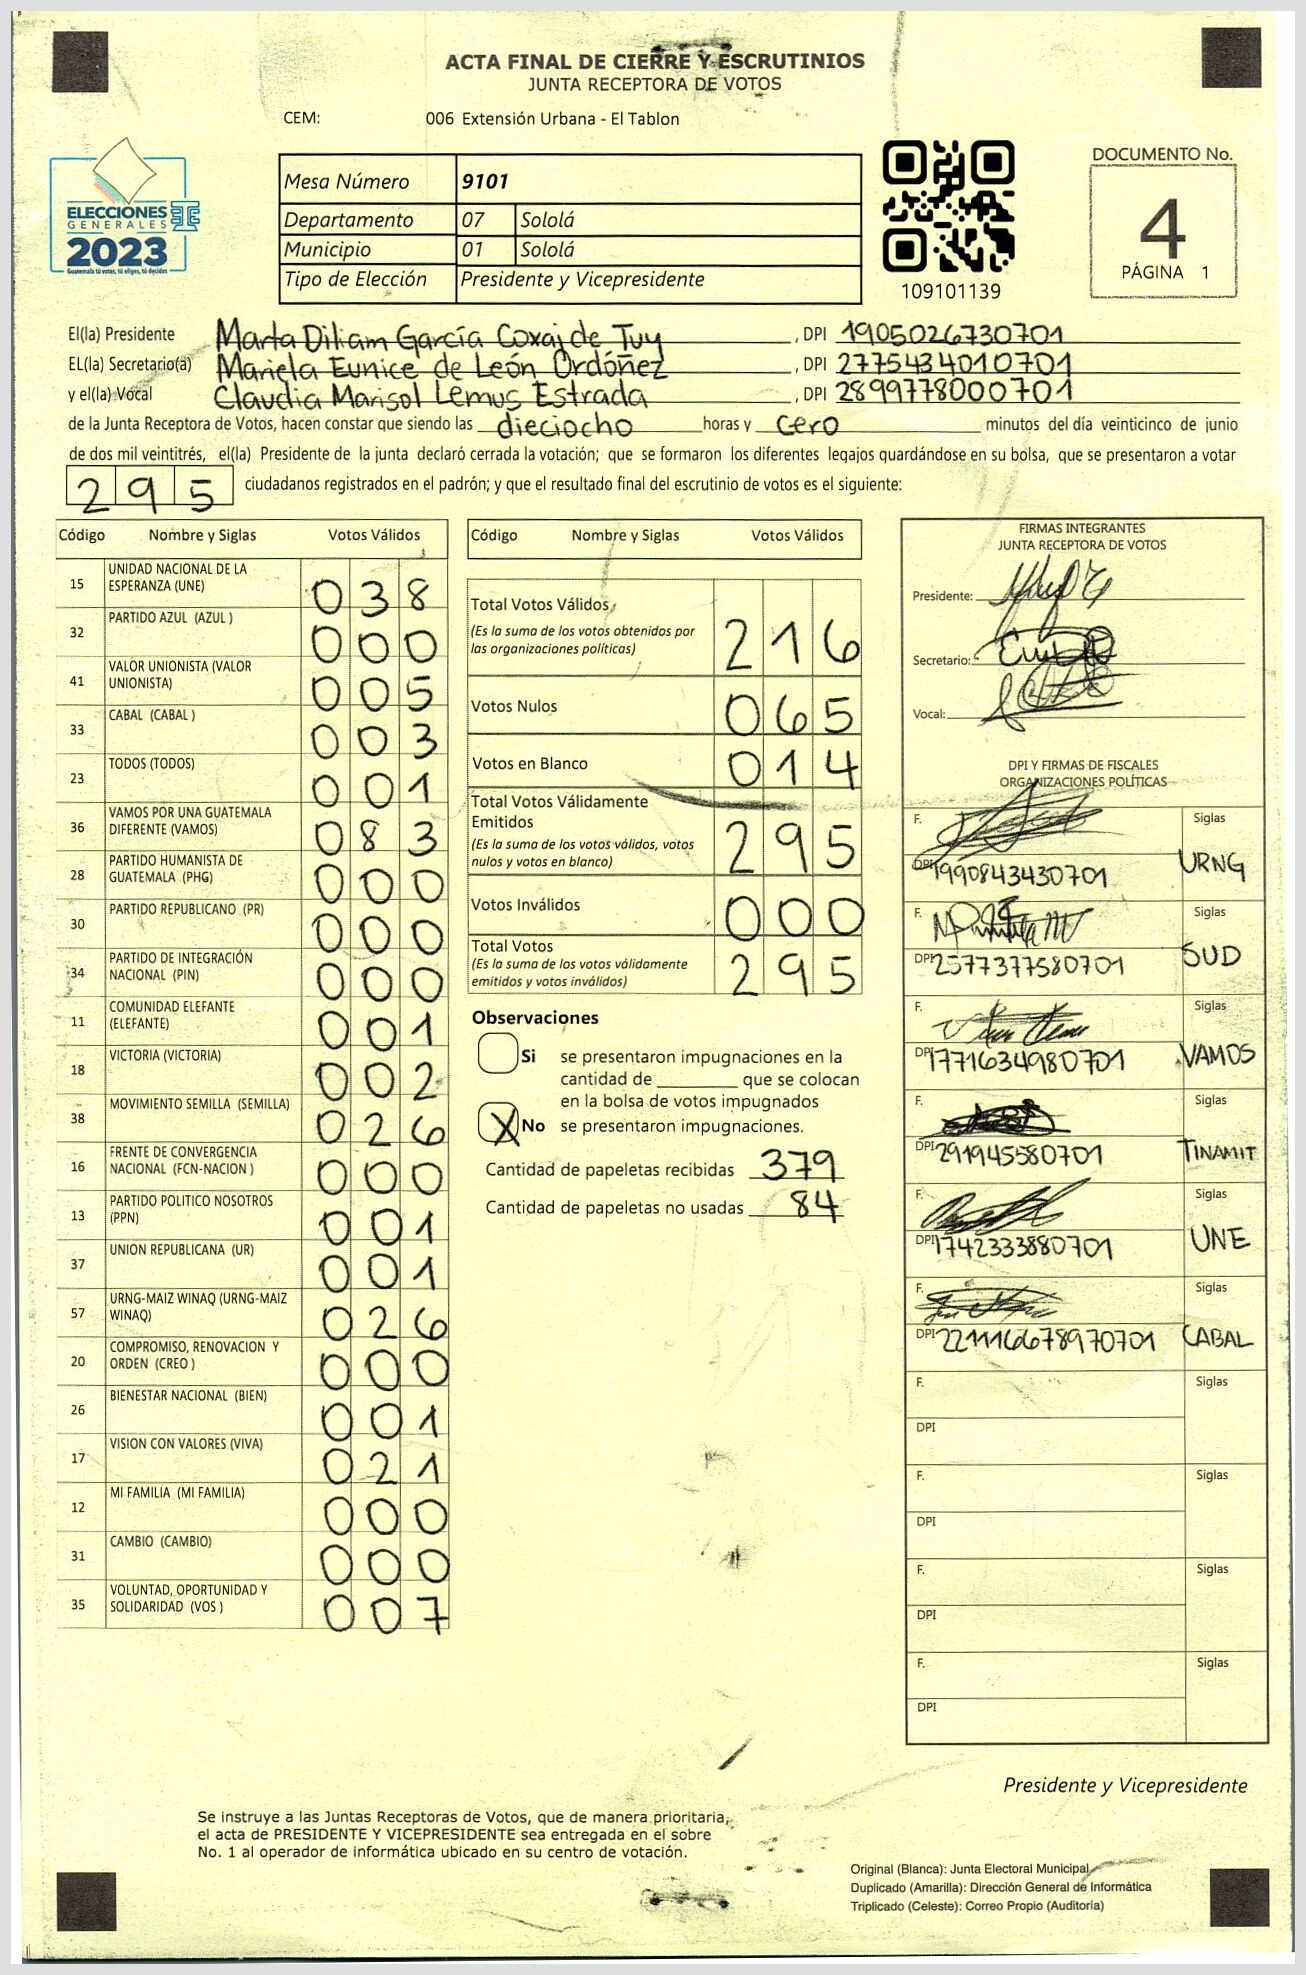 ACTA FINAL DE CIERRE Y ESCRUTINIOS
JUNTA RECEPTORA DE VOTOS
CEM: 006 Extensión Urbana - El Tablon
ELECCIONES
GENERALES
2023
Guatemala tú votas, tú eliges, tú decides
Mesa Número 9101
Departamento 07 Sololá
Municipio 01 Sololá
Tipo de Elección Presidente y Vicepresidente
109101139
DOCUMENTO No.
4
PÁGINA 1
El(la) Presidente Marta Diliam García Coxaj de Tuy , DPI 1905026730701
EL(la) Secretario(a) Mariela Eunice de León Ordóñez , DPI 2775434010701
y el(la) Vocal Claudia Marisol Lemus Estrada , DPI 2899778000701
de la Junta Receptora de Votos, hacen constar que siendo las dieciocho horas y cero minutos del día veinticinco de junio
de dos mil veintitrés, el(la) Presidente de la junta declaró cerrada la votación; que se formaron los diferentes legajos guardándose en su bolsa, que se presentaron a votar
295 ciudadanos registrados en el padrón; y que el resultado final del escrutinio de votos es el siguiente:
Código Nombre y Siglas Votos Válidos
15 UNIDAD NACIONAL DE LA ESPERANZA (UNE) 038
32 PARTIDO AZUL (AZUL ) 000
41 VALOR UNIONISTA (VALOR UNIONISTA) 005
33 CABAL (CABAL ) 003
23 TODOS (TODOS) 001
36 VAMOS POR UNA GUATEMALA DIFERENTE (VAMOS) 083
28 PARTIDO HUMANISTA DE GUATEMALA (PHG) 000
30 PARTIDO REPUBLICANO (PR) 000
34 PARTIDO DE INTEGRACIÓN NACIONAL (PIN) 000
11 COMUNIDAD ELEFANTE (ELEFANTE) 001
18 VICTORIA (VICTORIA) 002
38 MOVIMIENTO SEMILLA (SEMILLA) 026
16 FRENTE DE CONVERGENCIA NACIONAL (FCN-NACION ) 000
13 PARTIDO POLITICO NOSOTROS (PPN) 001
37 UNION REPUBLICANA (UR) 001
57 URNG-MAIZ WINAQ (URNG-MAIZ WINAQ) 026
20 COMPROMISO, RENOVACION Y ORDEN (CREO ) 000
26 BIENESTAR NACIONAL (BIEN) 001
17 VISION CON VALORES (VIVA) 021
12 MI FAMILIA (MI FAMILIA) 000
31 CAMBIO (CAMBIO) 000
35 VOLUNTAD, OPORTUNIDAD Y SOLIDARIDAD (VOS ) 007
Código Nombre y Siglas Votos Válidos
Total Votos Válidos 216
(Es la suma de los votos obtenidos por
las organizaciones políticas)
Votos Nulos 065
Votos en Blanco 014
Total Votos Válidamente
Emitidos 295
(Es la suma de los votos válidos, votos
nulos y votos en blanco)
Votos Inválidos 000
Total Votos 295
(Es la suma de los votos válidamente
emitidos y votos inválidos)
Observaciones
Si se presentaron impugnaciones en la
cantidad de ________ que se colocan
en la bolsa de votos impugnados
X No se presentaron impugnaciones.
Cantidad de papeletas recibidas 379
Cantidad de papeletas no usadas 84
FIRMAS INTEGRANTES
JUNTA RECEPTORA DE VOTOS
Presidente:
Secretario:
Vocal:
DPI Y FIRMAS DE FISCALES
ORGANIZACIONES POLÍTICAS
F. Siglas
DPI 1990843430701 URNG
F. Siglas
DPI 2577377580701 SUD
F. Siglas
DPI 1771634980701 VAMOS
F. Siglas
DPI 291945580701 TINAMIT
F. Siglas
DPI 1742333880701 UNE
F. Siglas
DPI 221116678970701 CABAL
F. Siglas
DPI
F. Siglas
DPI
F. Siglas
DPI
F. Siglas
DPI
Presidente y Vicepresidente
Se instruye a las Juntas Receptoras de Votos, que de manera prioritaria,
el acta de PRESIDENTE Y VICEPRESIDENTE sea entregada en el sobre
No. 1 al operador de informática ubicado en su centro de votación.
Original (Blanca): Junta Electoral Municipal
Duplicado (Amarilla): Dirección General de Informática
Triplicado (Celeste): Correo Propio (Auditoria)